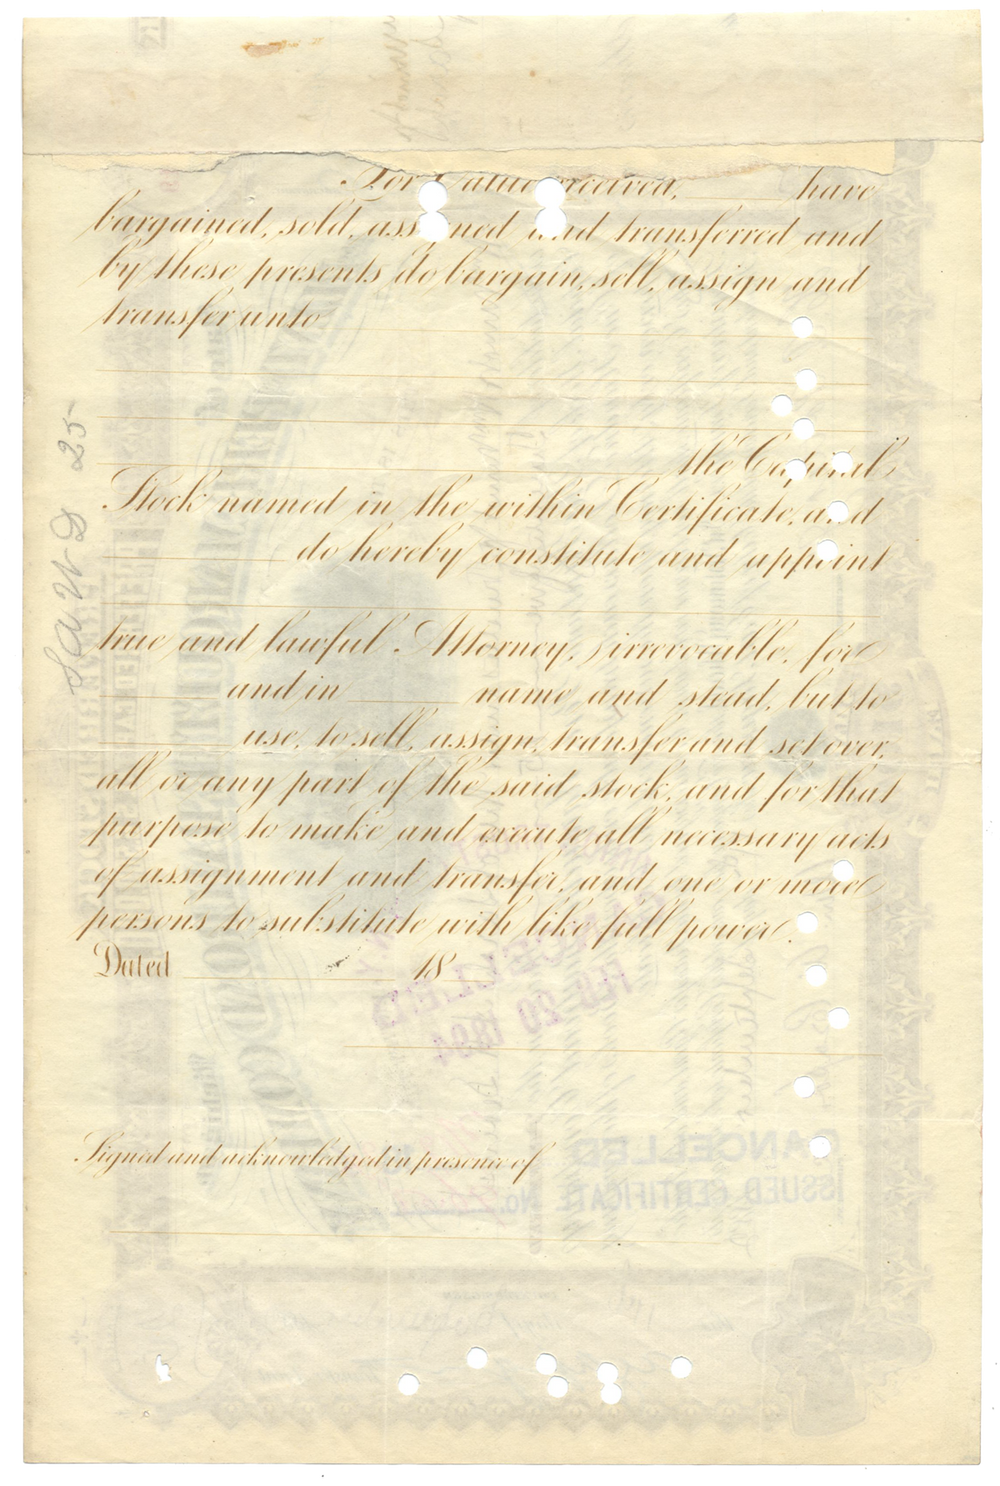 For Value received, ______ have
bargained, sold, assigned and transferred and
by these presents do bargain, sell, assign and
transfer unto
the Capital
Stock named in the within Certificate, and
______ do hereby constitute and appoint
true and lawful Attorney, irrevocable, for
______ and in ______ name and stead, but to
______ use, to sell, assign, transfer and set over,
all or any part of the said stock, and for that
purpose to make and execute all necessary acts
of assignment and transfer, and one or more
persons to substitute with like full power.
Dated ______ 18
Signed and acknowledged in presence of
CANCELLED
FEB 20 1894
CANCELLED
ISSUED CERTIFICATE No.